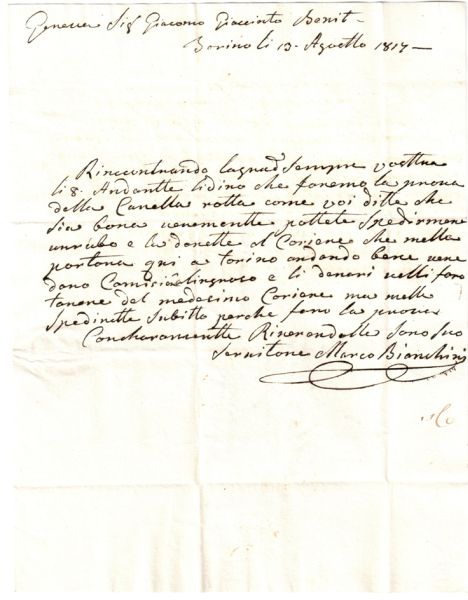 Genova Sig Giacomo Giacinto Bonit
Torino li 13 Agosto 1817
Rincontrando sempre vosttra
li 8. Andantte li dico che faremo la prova
della Canella rotta come voi ditte che
sia bona veramentte pottete spedirmene
un rubo e la darette al Coriere che mella
portara qui a torino andando bene vene
daro Comision e li denari velli faro
tenere del medesimo Coriere ma mella
spedirette subitto perche fero la prova
Riverandolla sono suo
servitore Marco Bianchini